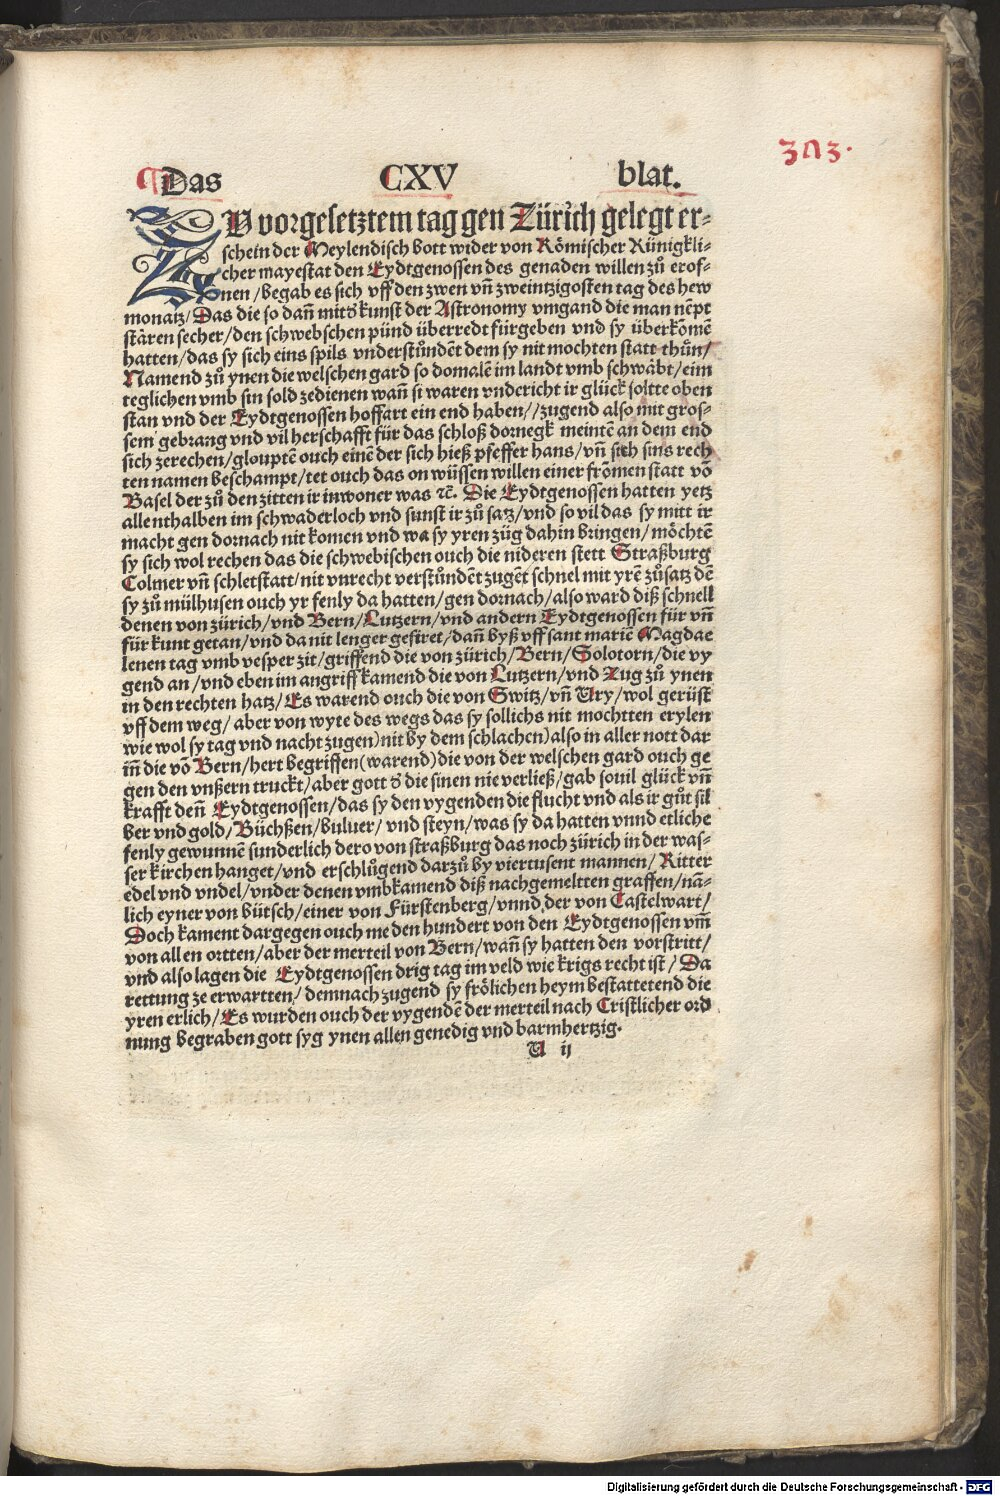 303.
¶Das CXV blat.
ZU vorgesetztem tag gen Zürich gelegt er-
schein der Meylendisch bott wider von Römischer Künigkli-
cher mayestat den Eydtgenossen des genaden willen zů erof-
nen / begab es sich vff den zwen vñ zweintzigosten tag des hew
monatz / Das die so dañ mit d' kunst der Astronomy vmgand die man nēpt
stären secher / den schwebschen pünd überredt fürgeben vnd sy überkōmē
hatten / das sy sich eins spils vnderstůndēt dem sy nit mochten statt thůn /
Namend zů ynen die welschen gard so domalē im landt vmb schwäbt / eim
teglichen vmb sin sold zedienen wañ si waren vndericht ir glück soltte oben
stan vnd der Eydtgenossen hoffart ein end haben / / zugend also mit gros-
sem gebrang vnd vil herschafft für das schloß dornegk meintē an dem end
sich zerechen / glouptē ouch einē der sich hieß pfeffer hans / vñ sich sins rech
ten namen beschampt / tet ouch das on wüssen willen einer frōmen statt vō
Basel der zů den zitten ir inwoner was ꝛc̄. Die Eydtgenossen hatten yetz
allenthalben im schwaderloch vnd sunst ir zů satz / vnd so vil das sy mitt ir
macht gen dornach nit komen vnd wa sy yren züg dahin bringen / möchtē
sy sich wol rechen das die schwebischen ouch die nideren stett Straßburg
Colmer vñ schletstatt / nit vnrecht verstůndēt zugēt schnel mit yrē zůsatz dē
sy zů mülhusen ouch yr fenly da hatten / gen dornach / also ward diß schnell
denen von zürich / vnd Bern / Lutzern / vnd andern Eydtgenossen für vñ
für kunt getan / vnd da nit lenger gefiret / dañ byß vff sant mariē Magdae
lenen tag vmb vesper zit / griffend die von zürich / Bern / Solotorn / die vy
gend an / vnd eben im angriff kamend die von Lutzern / vnd Zug zů ynen
in den rechten hatz / Es warend ouch die von Switz / vñ Ury / wol gerüst
vff dem weg / aber von wyte des wegs das sy sollichs nit mochtten erylen
wie wol sy tag vnd nacht zugen) nit by dem schlachen) also in aller nott dar
iñ die vō Bern / hert begriffen (warend) die von der welschen gard ouch ge
gen den vnßern truckt / aber gott d' die sinen nie verließ / gab souil glück vñ
krafft deñ Eydtgenossen / das sy den vygenden die flucht vnd als ir gůt sil
ber vnd gold / Büchßen / buluer / vnd steyn / was sy da hatten vnnd etliche
fenly gewunnē sunderlich dero von straßburg das noch zürich in der was-
ser kirchen hanget / vnd erschlůgend darzů by viertusent mannen / Ritter
edel vnd vndel / vnder denen vmbkamend diß nachgemeltten graffen / nā-
lich eyner von bütsch / einer von Fürstenberg / vnnd der von Castelwart /
Doch kament dargegen ouch me den hundert von den Eydtgenossen vm̄
von allen ortten / aber der merteil von Bern / wañ sy hatten den vorstritt /
vnd also lagen die Eydtgenossen drig tag im veld wie krigs recht ist / Da
rettung ze erwartten / demnach zugend sy frölichen heym bestattetend die
yren erlich / Es wurden ouch der vygendē der merteil nach Cristlicher ord
nung begraben gott syg ynen allen genedig vnd barmhertzig.
U ij
Digitalisierung gefördert durch die Deutsche Forschungsgemeinschaft - DFG